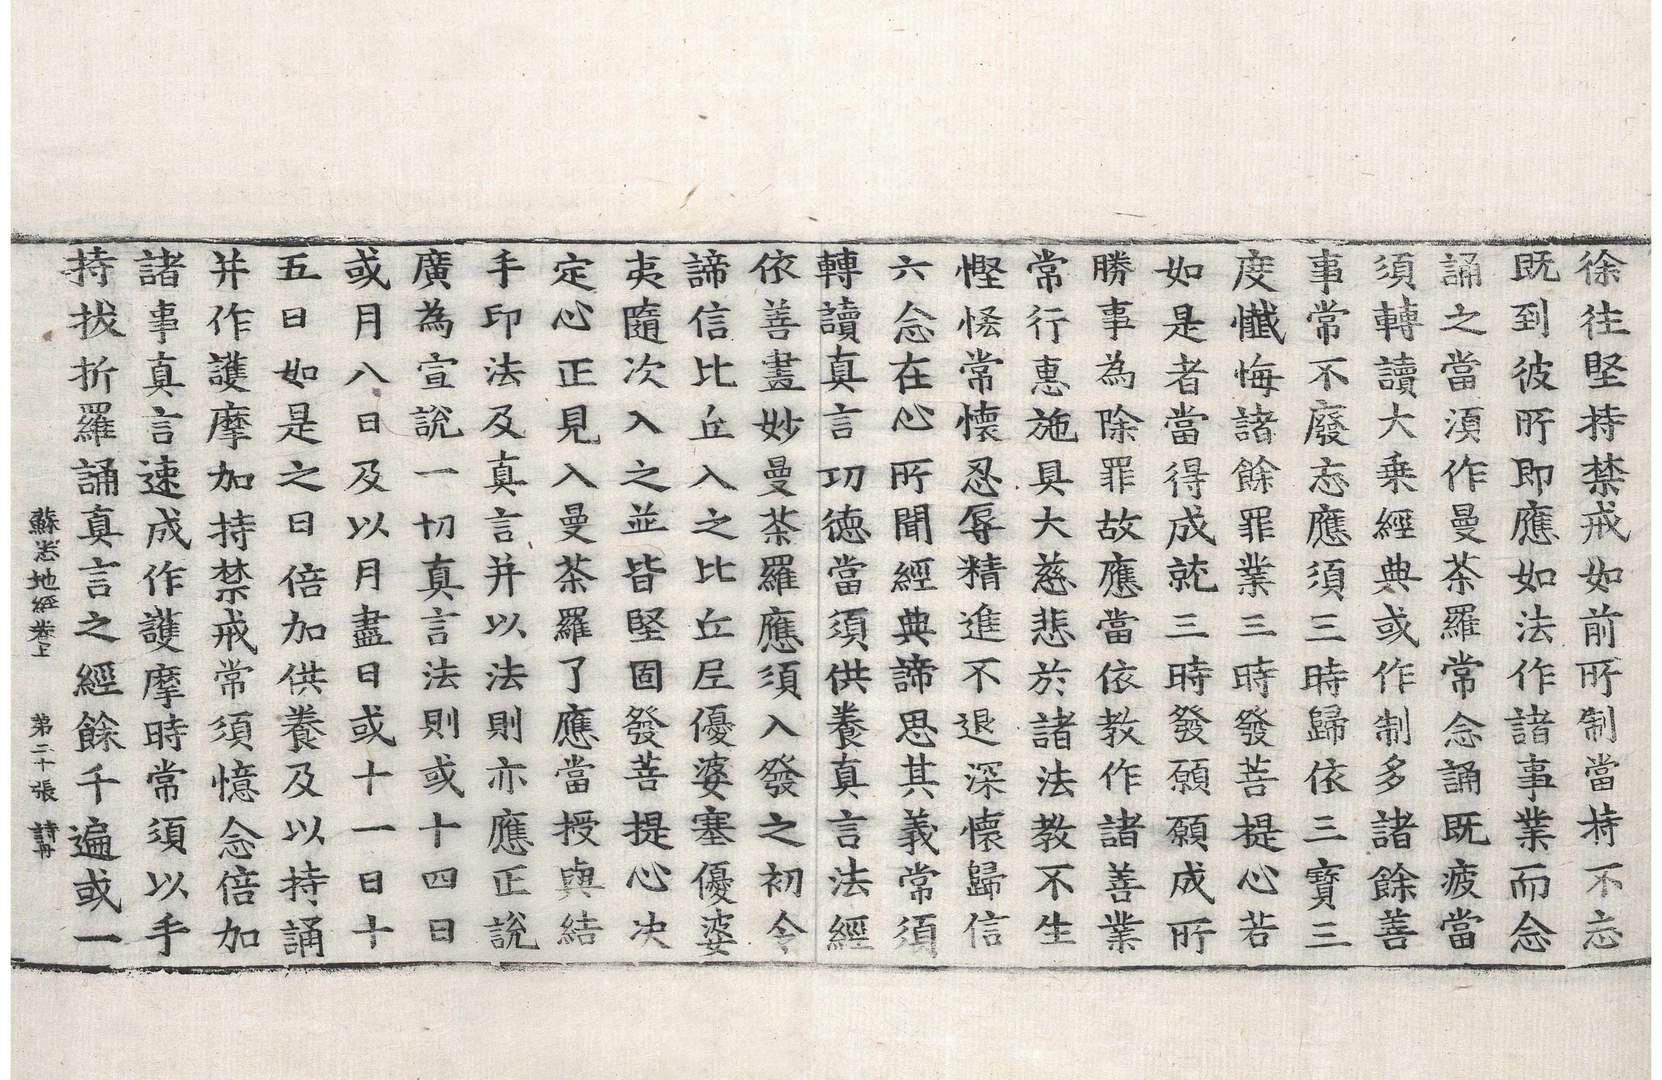 徐往堅持禁戒如前所制當持不忘
既到彼所即應如法作諸事業而念
誦之當須作曼茶羅常念誦既疲當
須轉讀大乗經典或作制多諸餘善
事常不廢忘應須三時歸依三寶三
度懺悔諸餘罪業三時發菩提心若
如是者當得成就三時發願願成所
勝事為除罪故應當依教作諸善業
常行惠施具大慈悲於諸法教不生
慳悋常懷忍辱精進不退深懷歸信
六念在心所聞經典諦思其義常須
轉讀真言功徳當須供養真言法經
依善畫妙曼茶羅應須入發之初令
諦信比丘入之比丘尼優婆塞優婆
夷隨次入之並皆堅固發菩提心决
定心正見入曼茶羅了應當授與結
手印法及真言并以法則亦應正說
廣為宣說一切真言法則或十四日
或月八日及以月盡日或十一日十
五日如是之日倍加供養及以持誦
并作護摩加持禁戒常須憶念倍加
諸事真言速成作護摩時常須以手
持拔折羅誦真言之經餘千遍或一
蘇悉地經卷上　第二十張　詩冊